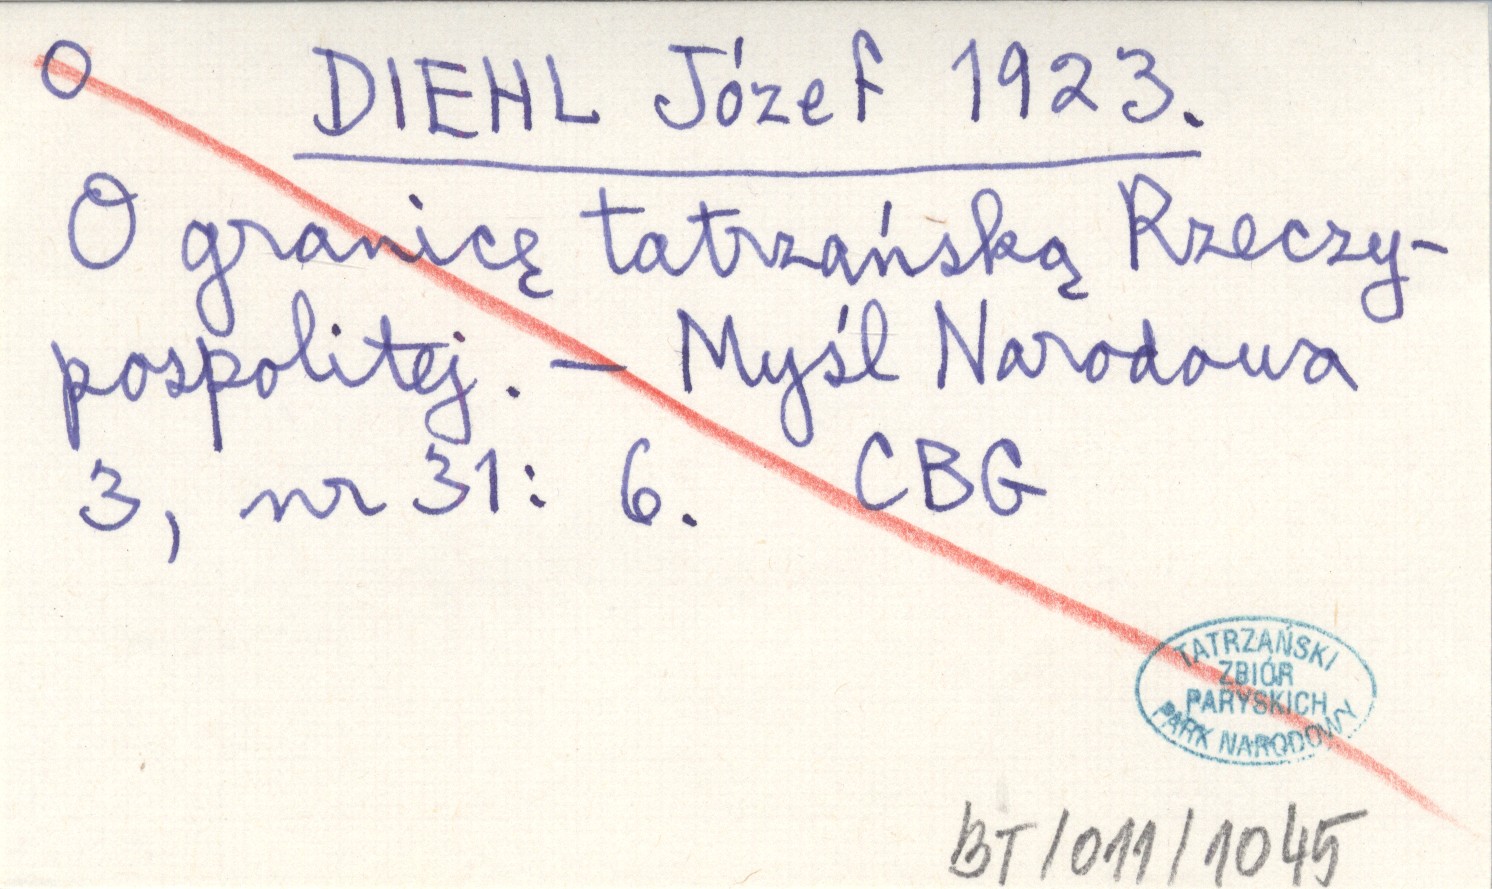 O DIEHL Józef 1923.
O granicę tatrzańską Rzeczy-
pospolitej. — Myśl Narodowa
3, nr 31: 6. CBG
TATRZAŃSKI
ZBIÓR
PARYSKICH
PARK NARODOWY
BT/011/1045